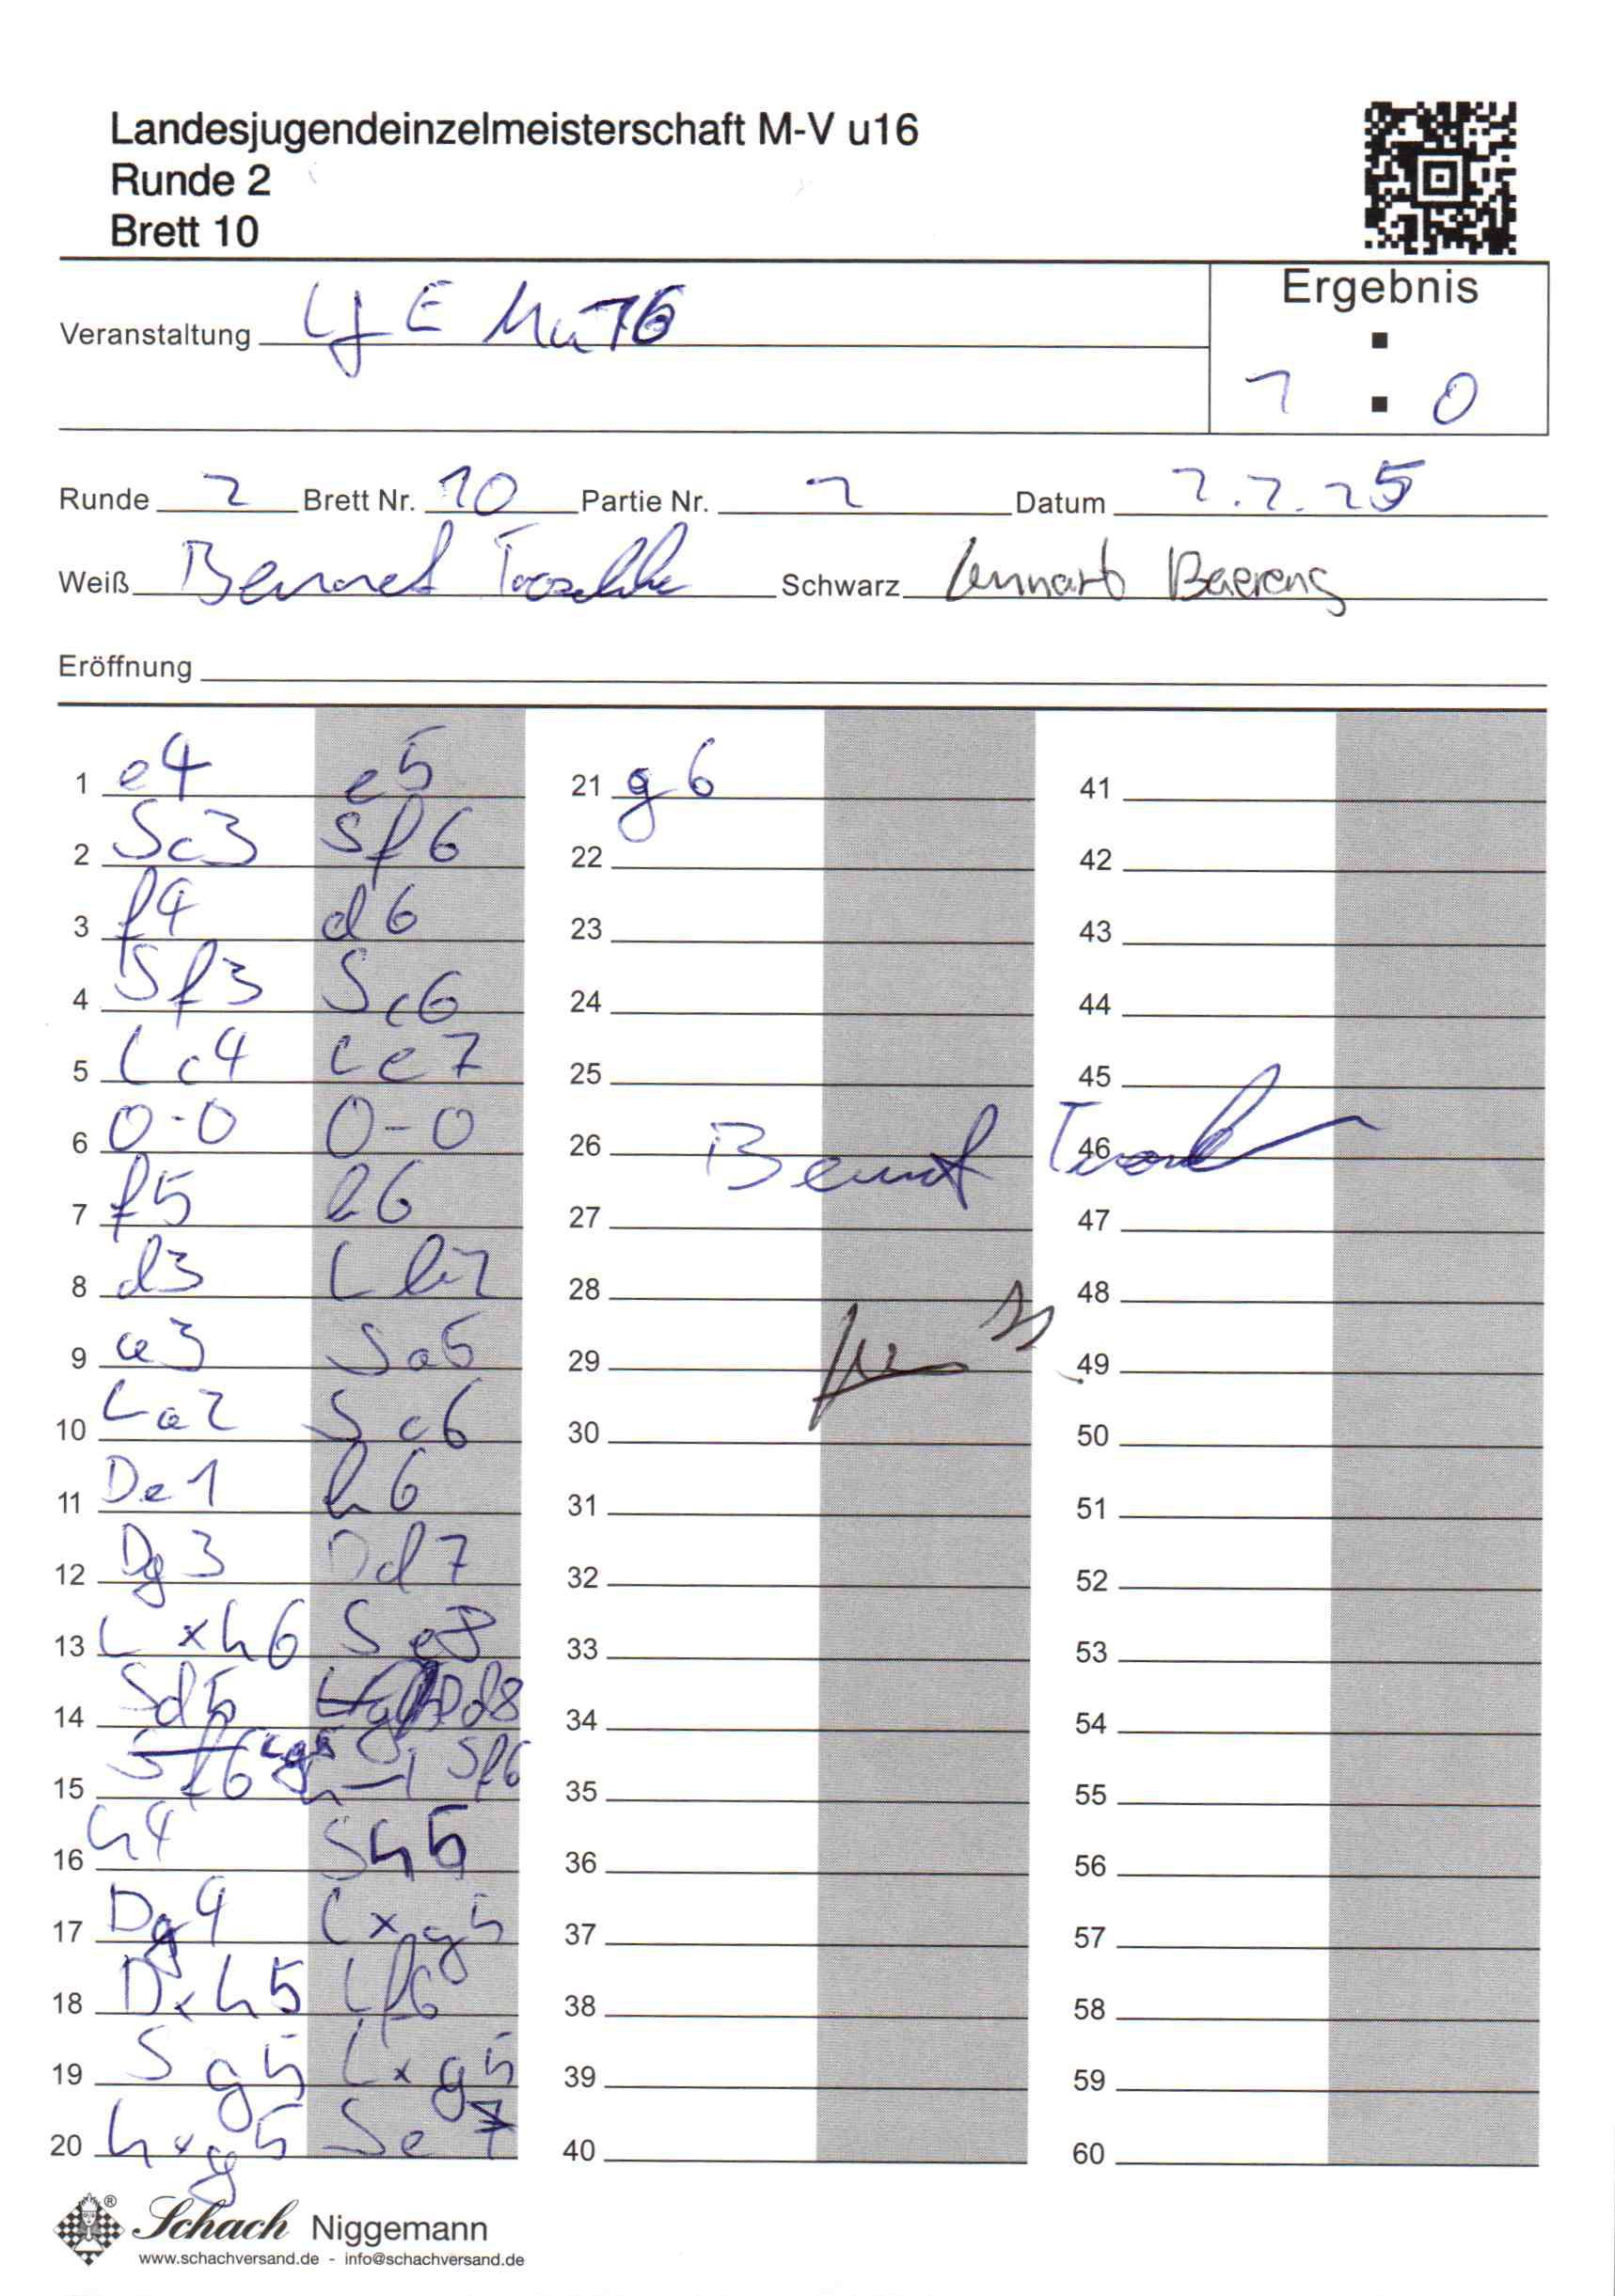 Landesjugendeinzelmeisterschaft M-V u16
Runde 2
Brett 10
Ergebnis
Veranstaltung LJEM u16
1 : 0
Runde 2 Brett Nr. 10 Partie Nr. 2 Datum 2.2.25
Weiß Bennet Schwarz Lennart Baerens
Eröffnung
1 e4 e5
2 Sc3 Sf6
3 f4 d6
4 Sf3 Sc6
5 Lc4 Le7
6 0-0 0-0
7 f5 b6
8 d3 Lb7
9 a3 Sa5
10 La2 Sc6
11 De1 h6
12 Dg3 Dd7
13 Lxh6 Se8
14 Sd5 Dd8
15 Lg5 Sf6
16 h4 Sh5
17 Dg4 Lxg5
18 Dxh5 Lf6
19 Sg5 Lxg5
20 hxg5 Se7
21 g6
22
23
24
25
26
27
28
29
30
31
32
33
34
35
36
37
38
39
40
41
42
43
44
45
46
47
48
49
50
51
52
53
54
55
56
57
58
59
60
Bennet
Schach Niggemann
www.schachversand.de - info@schachversand.de